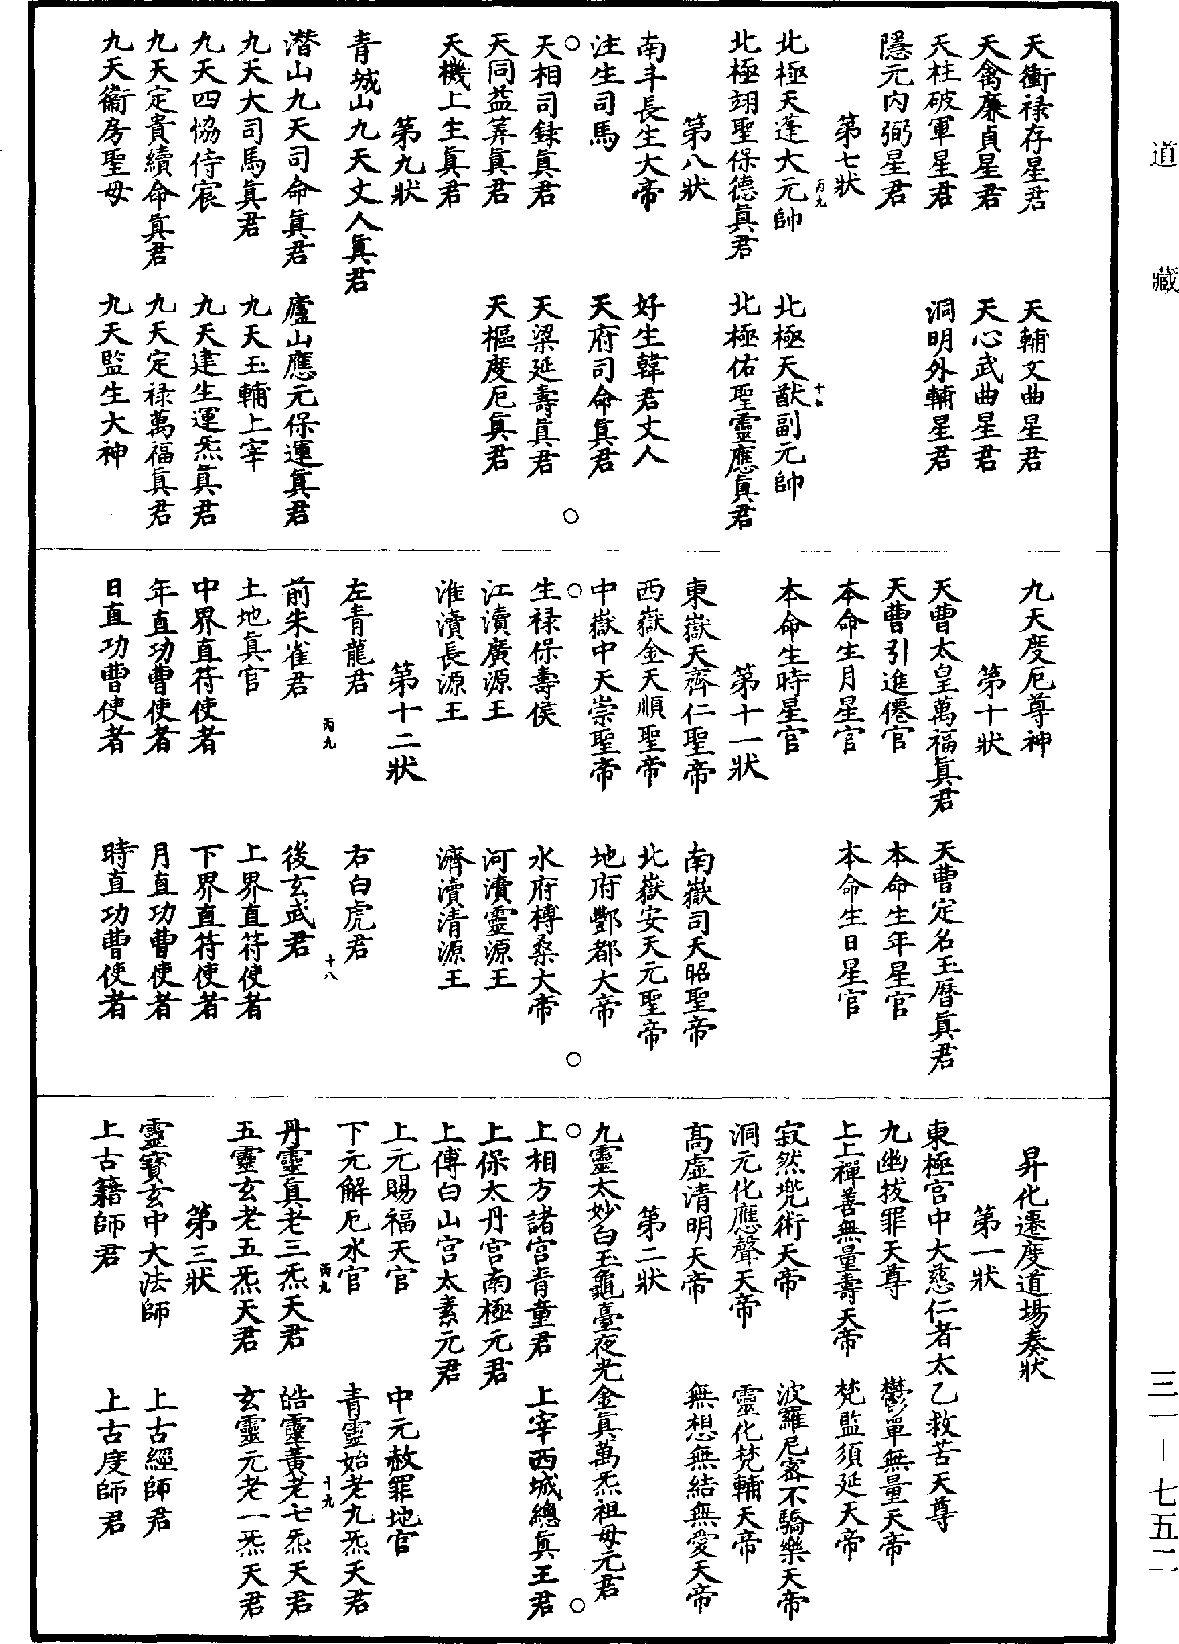 道藏
三一—七五二
天衝禄存星君　天輔文曲星君
天禽廉貞星君　天心武曲星君
天柱破軍星君　洞明外輔星君
隱元内弼星君
第七狀
丙九
北極天蓬大元帥　北極天猷副元帥
北極翊聖保德真君　北極佑聖靈應真君
第八狀
南斗長生大帝　好生韓君丈人
注生司馬　天府司命真君
○天相司録真君　天梁延壽真君○
天同益筭真君　天樞度厄真君
天機上生真君
第九狀
青城山九天丈人真君
潛山九天司命真君　廬山應元保運真君
九天大司馬真君　九天玉輔上宰
九天四協侍宸　九天建生運炁真君
九天定貴續命真君　九天定禄萬福真君
九天衞房聖母　九天監生大神
九天度厄尊神
第十狀
天曹太皇萬福真君　天曹定名玉曆真君
天曹引進僊官　本命生年星官
本命生月星官　本命生日星官
本命生時星官
第十一狀
東嶽天齊仁聖帝　南嶽司天昭聖帝
西嶽金天順聖帝　北嶽安天元聖帝
中嶽中天崇聖帝　地府酆都大帝
○生禄保壽侯　水府榑桑大帝○
江瀆廣源王　河瀆靈源王
淮瀆長源王　濟瀆清源王
第十二狀
左青龍君　右白虎君
丙九　十八
前朱雀君　後玄武君
土地真官　上界直符使者
中界直符使者　下界直符使者
年直功曹使者　月直功曹使者
日直功曹使者　時直功曹使者
昇化遷度道場奏狀
第一狀
東極宫中大慈仁者太乙救苦天尊
九幽拔罪天尊　鬱單無量天帝
上上禪善無量壽天帝　梵監須延天帝
寂然兠術天帝　波羅尼密不驕樂天帝
洞元化應聲天帝　靈化梵輔天帝
高虚清明天帝　無想無結無愛天帝
第二狀
九靈太妙白玉龜臺夜光金真萬炁祖母元君
○上相方諸宫青童君　上宰西城總真王君○
上保太丹宫南極元君
上傅白山宫太素元君
上元賜福天官　中元赦罪地官
下元解厄水官　青靈始老九炁天君
丙九　十九
丹靈真老三炁天君　皓靈黄老七炁天君
五靈玄老五炁天君　玄靈元老一炁天君
第三狀
靈寳玄中大法師　上古經師君
上古籍師君　上古度師君